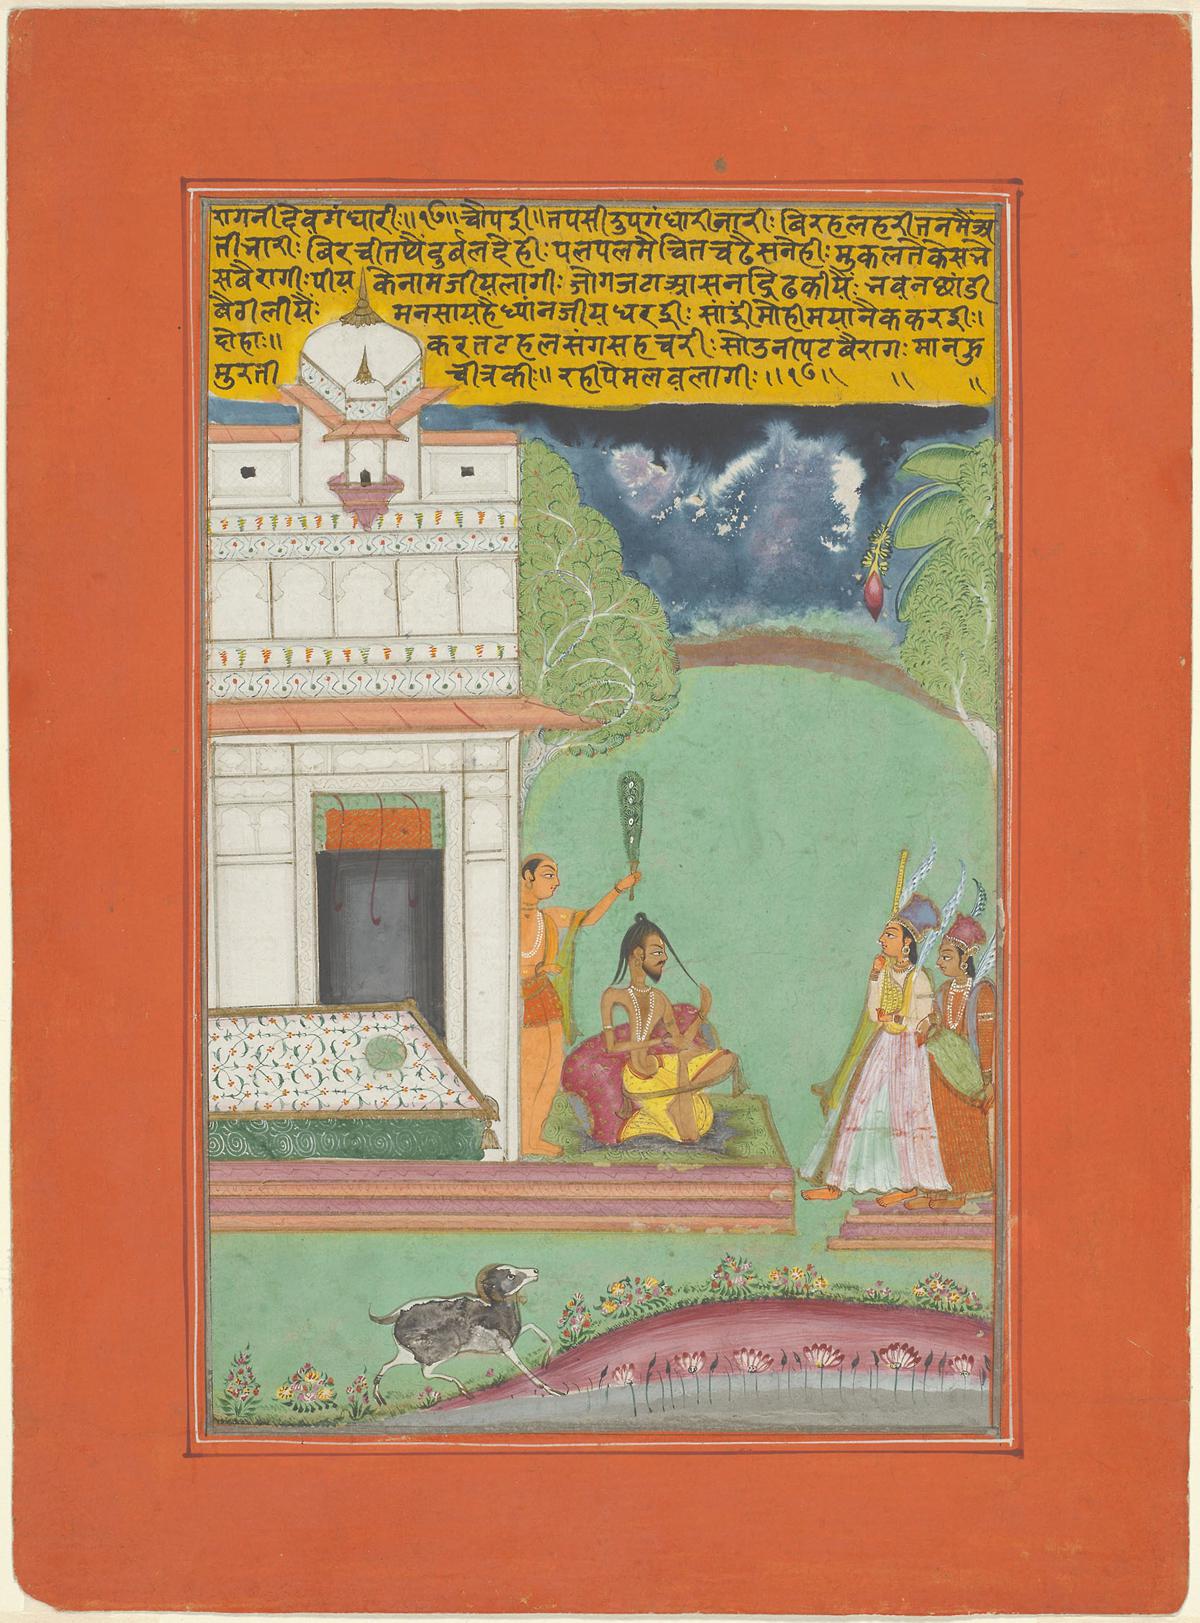 रागनी देवगंधारीः॥१७॥ चौपड़ी॥ तपसी दुष गंधारी नारीः बिरह लहरी तन मैं अ
ती जारीः बिरची तपैं दुर्बल देहीः पल पल मै चित चढै सनेहीः मुकलते केस
स बैरागीः पीय के नाम जीय लागीः जोग जटा आसन द्रिढ कीयैः
बैगी लीयैः मनसा य है ध्यांन जीय धरड़ीः सांड़ी मोही मया
दोहाः॥ करत टहल संग सहचरीः सो उनीपट बैरागः मानहु
मुरती चीत्र कीः॥ रही पेम लव लागीः॥१७॥ ॥ ॥